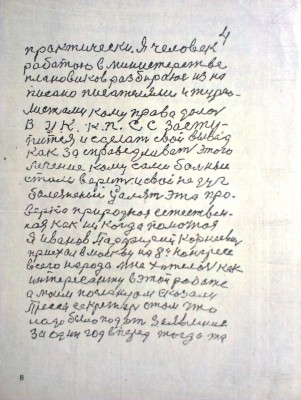 4
практически. Я человек
работаю в министерстве
плановиков разбираю из на
писано писателями и журна
листами кому права долог
В Ц К. К. П. С. С засту-
пится и сделат свой вывід
как за справедливать этого
лечение кому сами больные
стали верить свой неду г
болезней удалят эта про-
верено природная естествен-
ная как ни когда поможая
Я Иванов Парфирий Корнеевич
приехал в москву на 8й конгресс
всего народа мне хотелось как
интересанту в этой работе
а моим посланцом сказали
пресса секретер о том что
надо было подат заявление
за один год вперед тогда та
8